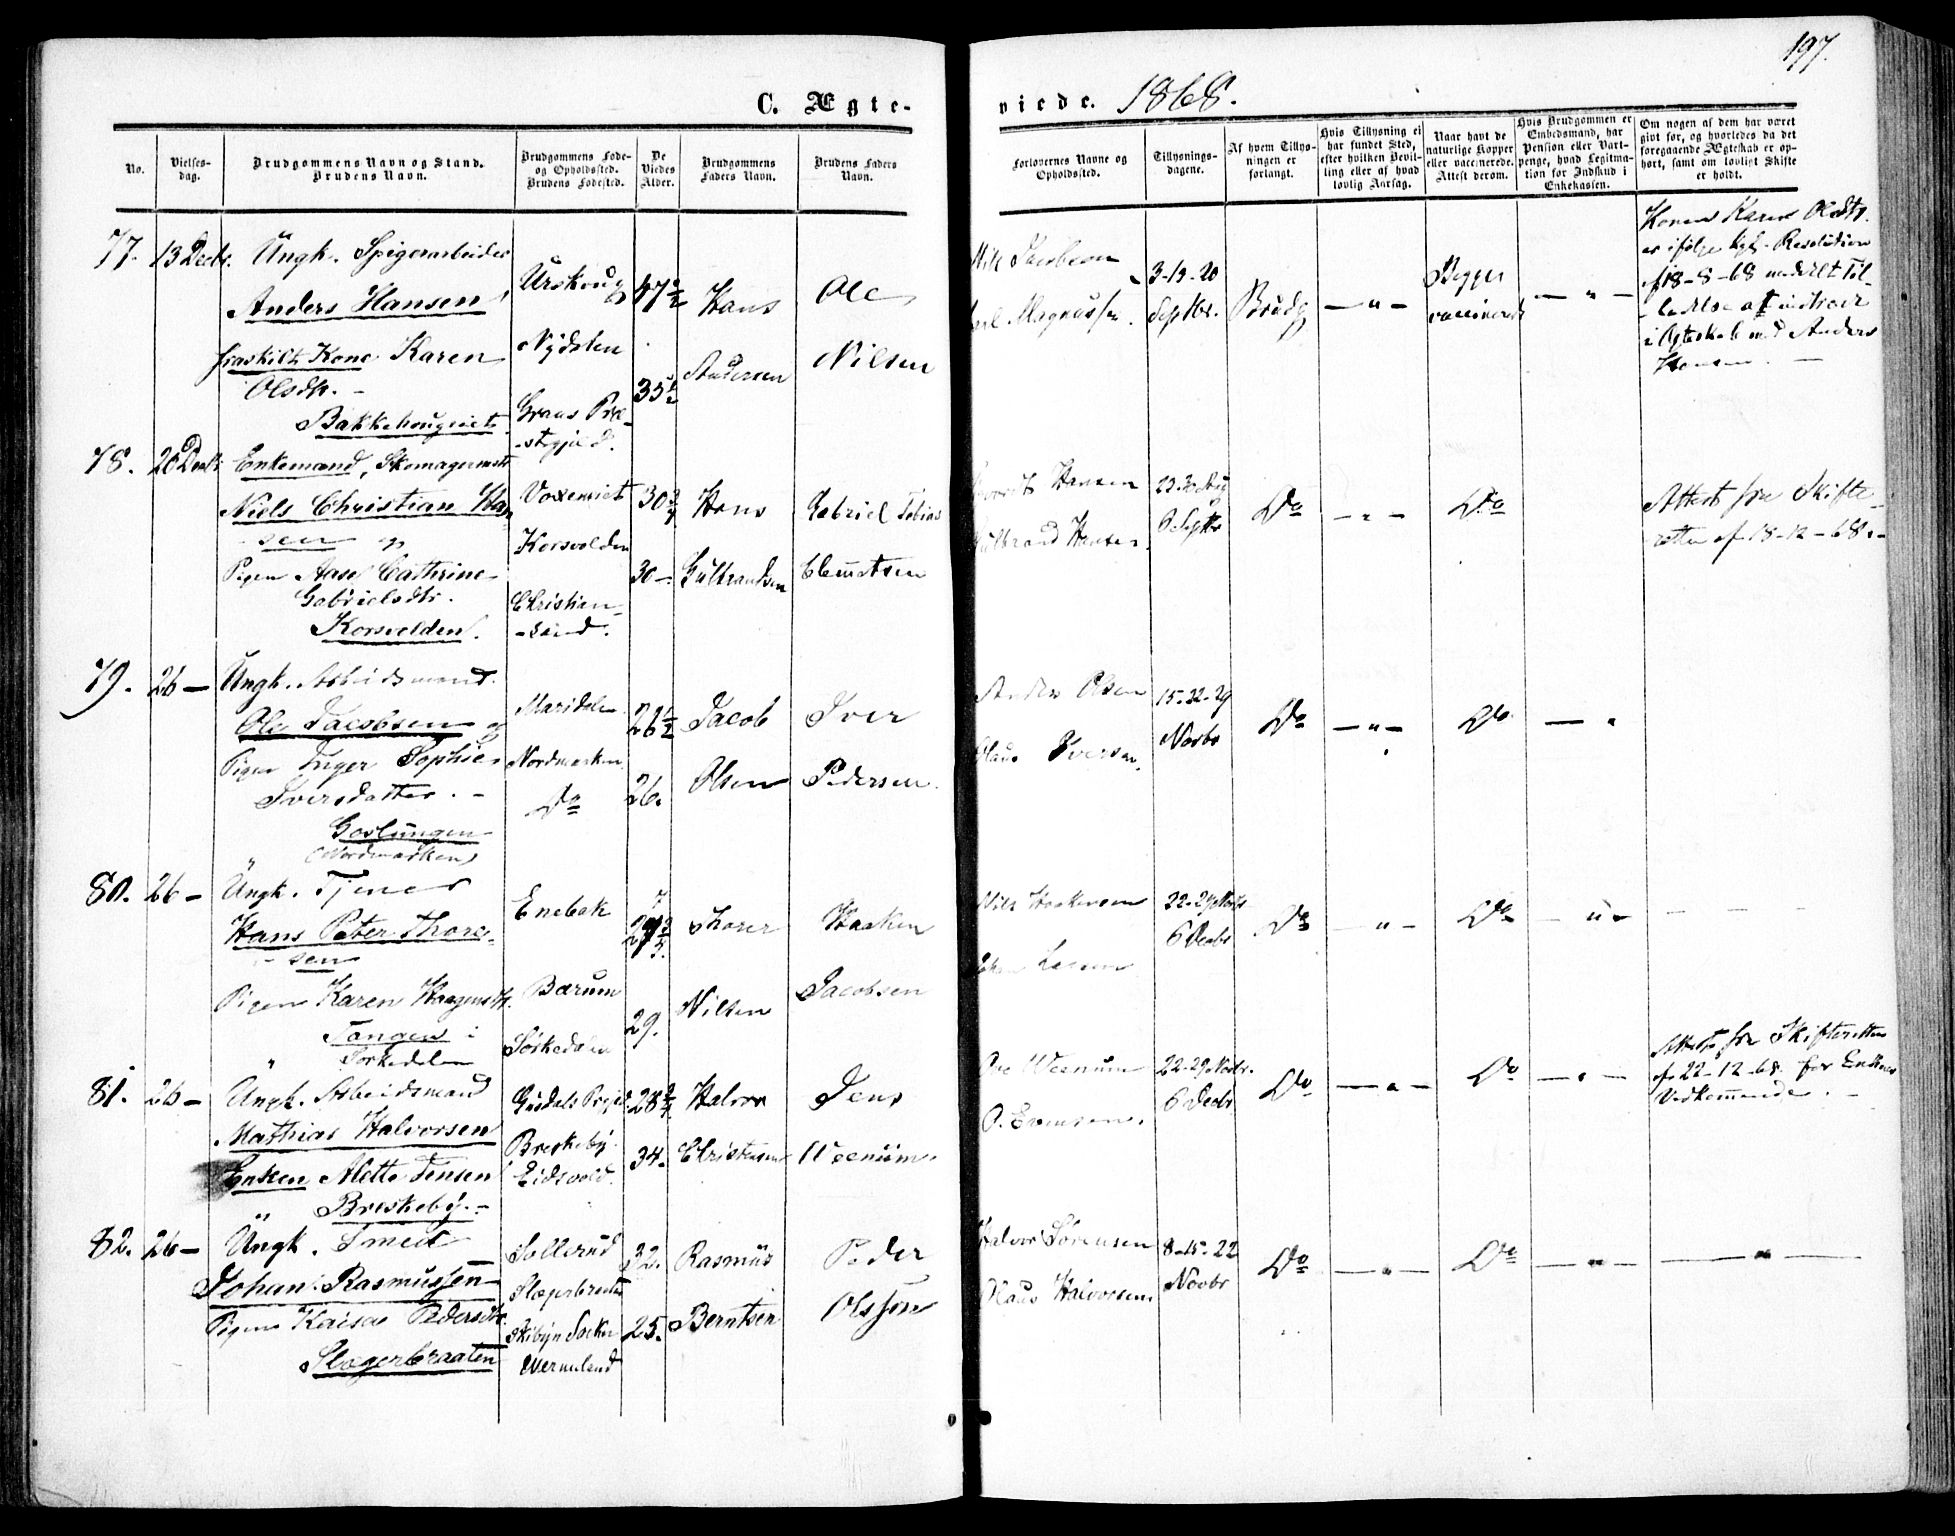 197.
C. Ægte-
viede. 1868.
No.
Vielses-
dag.
Brudgommens Navn og Stand.
Brudens Navn.
Brudgommens Føde-
og Opholdssted.
Brudens Fødested.
De
Viedes
Alder.
Brudgommens
Faders Navn.
Brudens Faders
Navn.
Forlovernes Navne og
Opholdssted.
Tillysnings-
dagene.
Af hvem Tillys-
ningen er
forlangt.
Hvis Tillysning ei
har fundet Sted,
efter hvilken Bevil-
ling eller af hvad
lovlig Aarsag.
Naar havt de
naturlige Kopper
eller vaccinerede.
Attest derom.
Hvis Brudgommen er
Embedsmand, har
Pension eller Vart-
penge, hvad Legitma-
tion for Indskud i
Enkekassen.
Om nogen af dem har været
givt før, og hvorledes da det
foregaaende Ægteskab er op-
hørt, samt om lovligt Skifte
er holdt.
77. 13 Decbr. Ungk. Spigerarbeider
Anders Hansen
fraskilt Kone Karen
Olsdtr. -
Bakkehouget
Urskoug
Nydalen
Grans Præ-
stegjeld.
47 1/2
35 1/2
Hans
Andersen
Ole
Nilsen
Nils Jacobsen
Magnussen.
3-13-20
Septbr.
Brudg
— " —
Begge
vaccinerede
— " —
Konen Karen Olsdtr.
er ifølge kgl. Resolution
af 18-8-68 meddelt Til-
ladelse at indtræde
i Ægteskab med Anders
Hansen. —
78. 26 Decbr Enkemand, Skomagermstr
Niels Christian Han-
- sen og
Pigen Aase Cathrine
Gabrielsdtr.
Korsvolden.
Voxemiet
Korsvolden
Christian-
- sand.
30 3/4
30 -
Hans
Gulbrandsen
Gabriel Tobias
Clemetsen
Hansen
Gulbrand Hansen.
23-30 Aug
6 Septbr
Do
— " —
Do
Attest fra Skifte-
retten af 18-12-68. -
79. 26 — Ungk. Arbeidsmand.
Ole Jacobsen og
Pigen Inger Sophie
Iversdatter. -
Gaslungen
Nordmarken
Maridalen
Nordmarken
Do
26 1/2
26.
Jacob
Olsen
Iver
Pedersen.
Anders Olsen
Iversen.
15-22-29
Novbr
Do
— " —
Do
— "
80. 26 — Ungk. Tjener
Hans Peter Thore-
- sen
Pigen Karen Haagensdtr.
Tangen i
Sørkedalen
Enebak
Bærum
Sørkedalen
29.
Thorer
Nilsen
Haaken
Jacobsen
Nils Haakensen
Larsen
22-29 Novbr
6 Decbr
Do
— " —
Do
— " —
81. 26 — Ungk. Arbeidsmand
Mathias Halvorsen
Enken Mette Jensen
Breskeby. -
Gusdals Prgjd
Breskeby.
Eidsvold.
28 3/4
34.
Halvor
Christensen
Jens
Weenum.
Ole Weenum
O. Evensen.
22-29 Novbr.
6 Decbr
Do
— " —
Do
— " —
Attest fra Skifteretten
af 22-12-68 for Enkens
Vedkommende. -
82. 26 — Ungk. Smed
Johan Rasmussen
Pigen Kaisa Pedersdtr.
Slagerbraaten
Sollerud
Slagerbraaten
Wermeland
32.
25.
Rasmus
Berntsen
Peder
Olsson
Halvor Sørensen
Olaus Halvorsen
8-15-22
Novbr
Do
— " —
Do
— " —
— " —